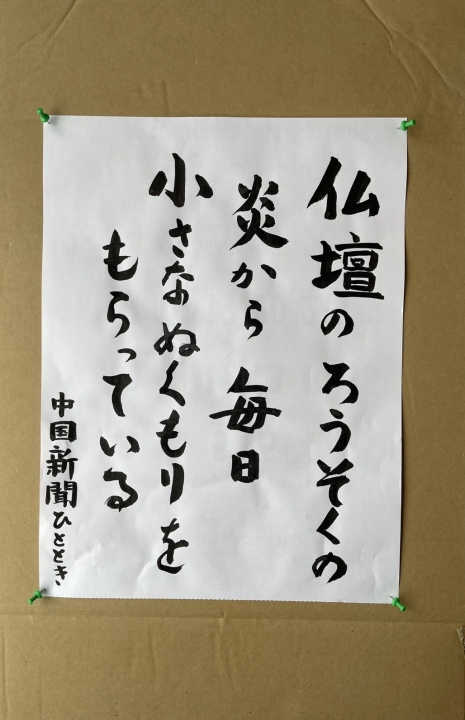 仏壇のろうそくの
炎から毎日
小さなぬくもりを
もらっている
中国新聞ひととき